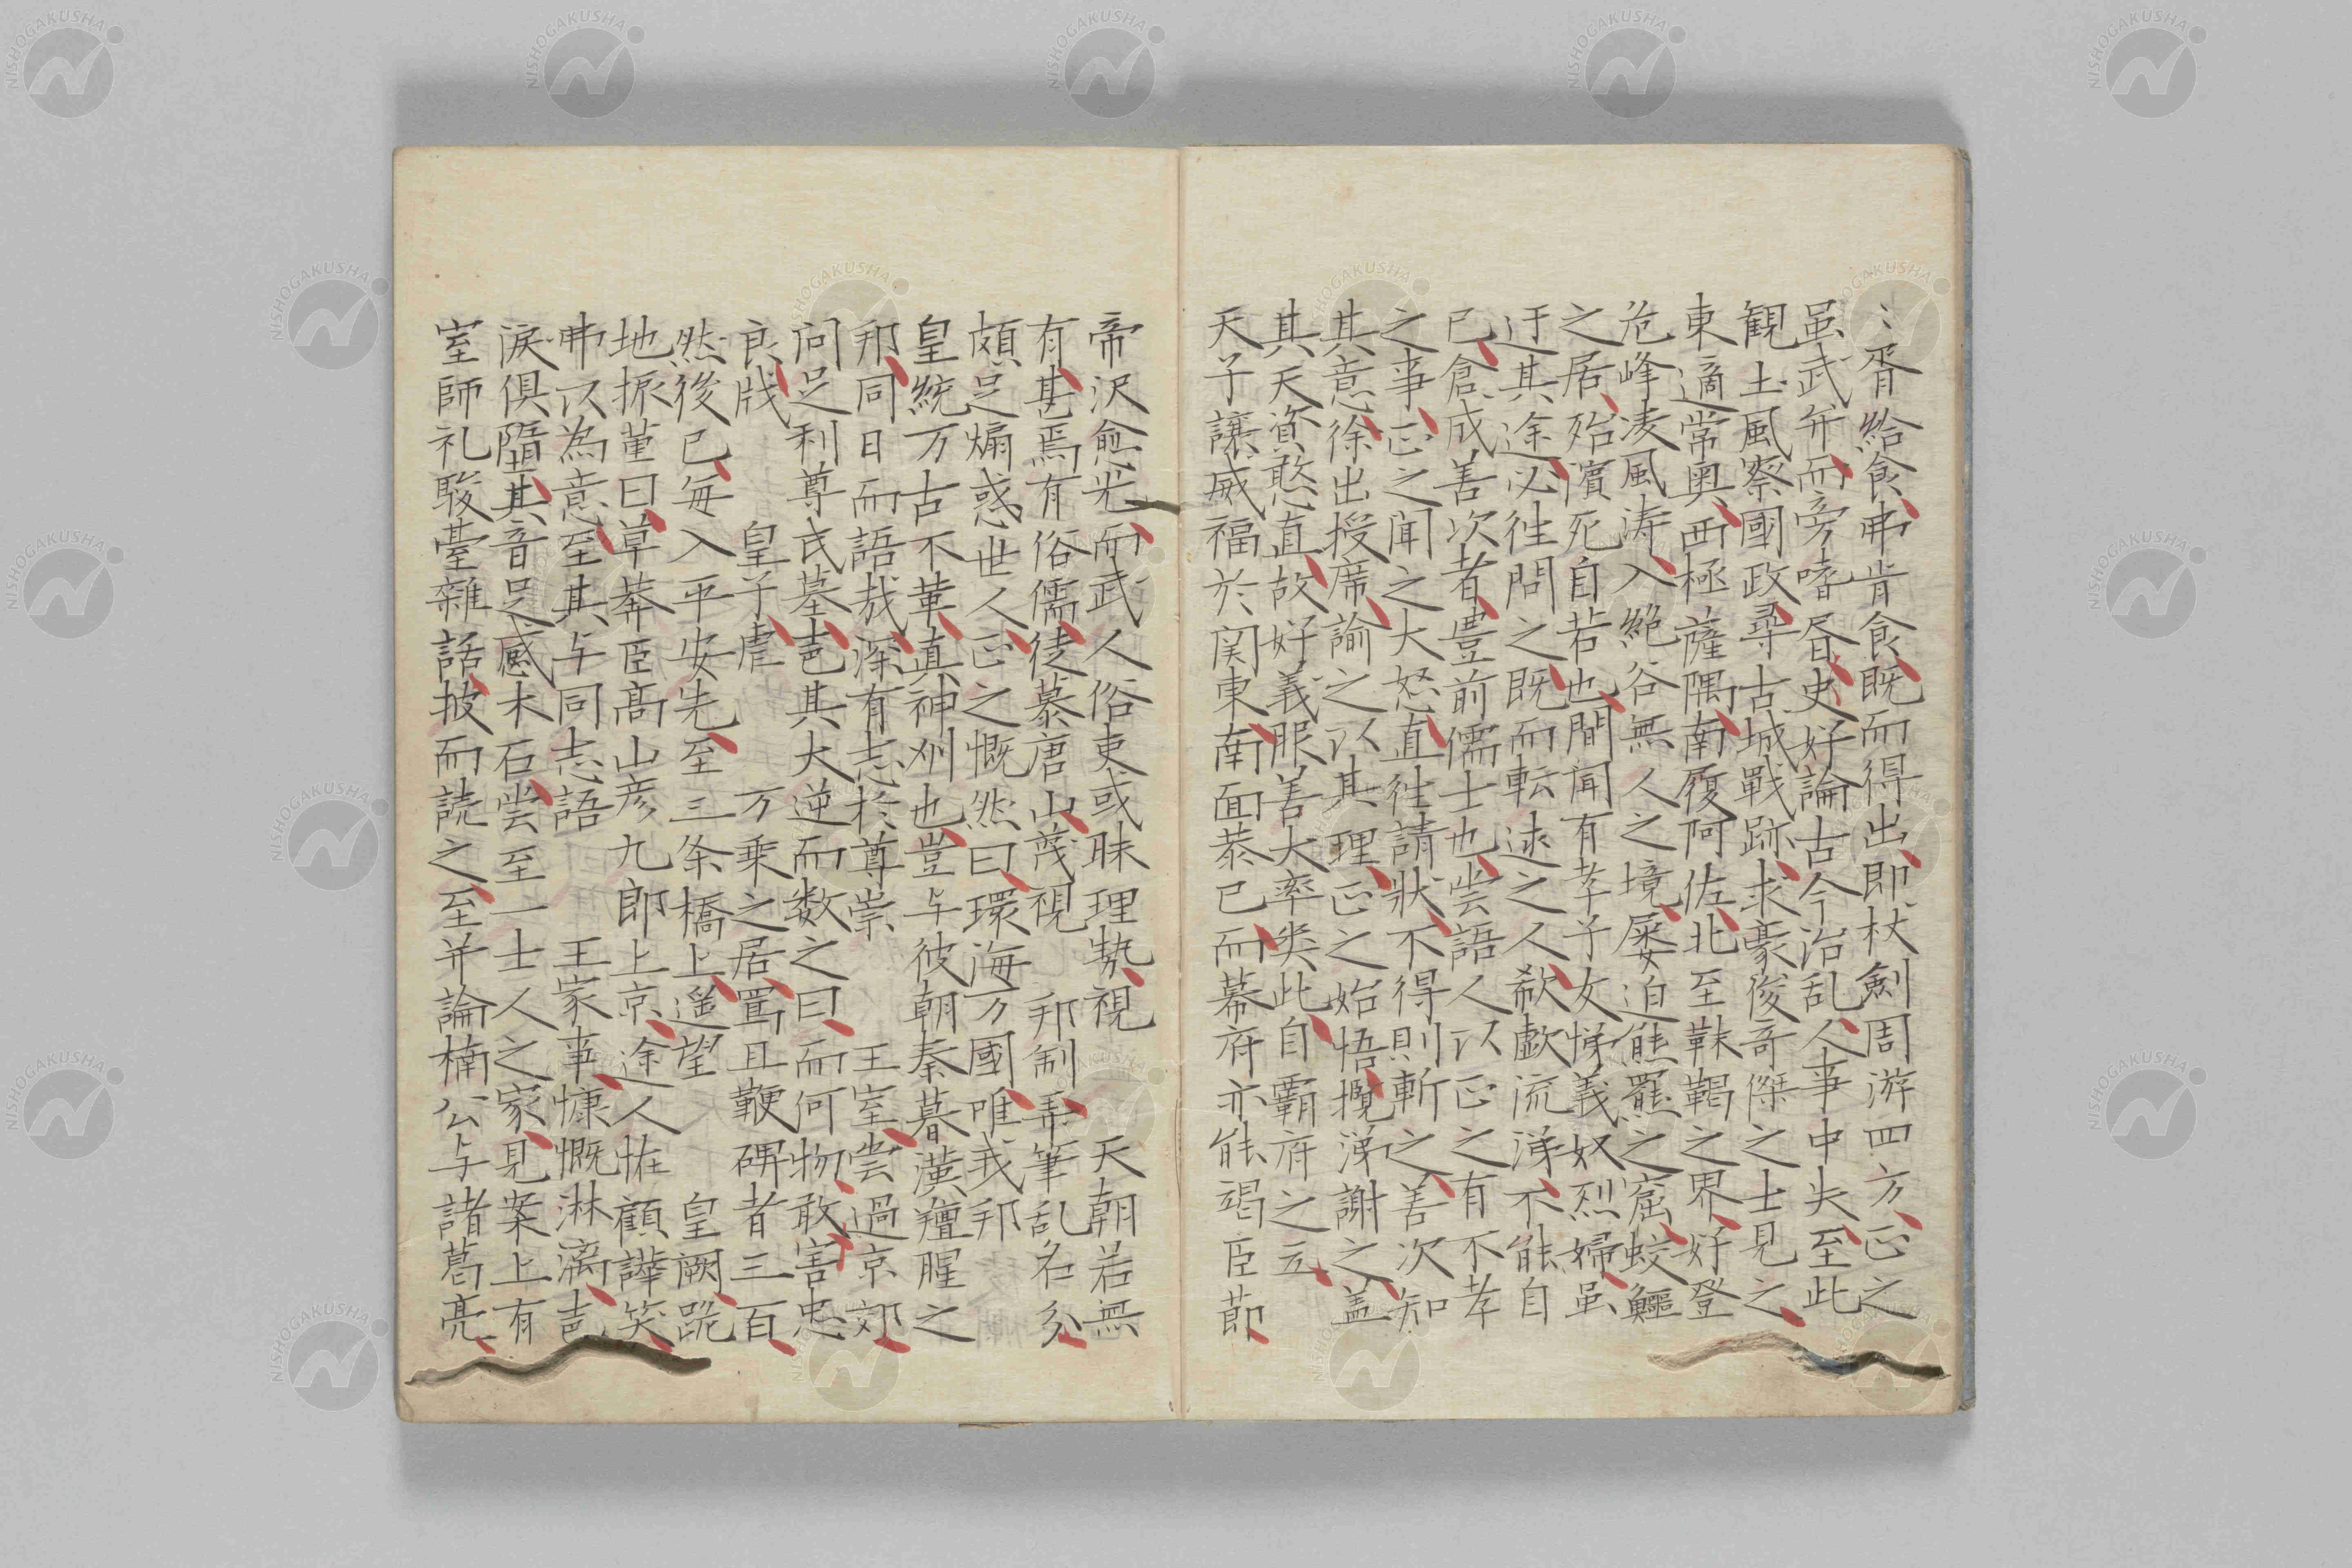 〻胥給食弗肯食既而得出即杖劍周游四方正之
虽武弁而旁嗜昏史好論古今治乱人事中失至此
観土風察國政尋古城戰跡求豪俊奇傑之士見之
東適常奥西極薩隅南履阿佐北至靺鞨之界好登
危峰凌風涛入絶谷無人之境屡迫熊羆之窟蛟鱷
之居殆濱死自若也間聞有孝子女悌義奴烈婦虽
迂其途必往問之既而転述之人欷歔流涕不能自
已倉成善次者豊前儒士也尝語人以正之有不孝
之事正之聞之大怒直往請状不得則斬之善次知
其意徐出授席諭之以其理正之始悟攬涕謝之盖
其天資憨直故好義服善大率类此自霸府之立
天子讓威福於関東南面恭已而幕府亦能竭臣節
帝沢愈光而武人俗吏或昧理勢視 天朝若無
有甚焉有俗儒徒慕唐山蔑視 邦制弄筆乱名分
頗足煽惑世人正之慨然曰環海万國唯我邦
皇統万古不革真神州也豈与彼朝秦暮漢羶腥之
邦同日而語哉深有志於尊崇 王室尝過京郊
问足利尊氏墓者其大逆而数之曰而何物敢害忠
良戕 皇子虐 万乘之居罵且鞭碑者三百
然後已每入平安先至三条橋上遥望 皇阙跪
地振菫曰草莽臣髙山彦九郎上京途人恠顧譁笑
弗以為意至其与同志語 王家事慷慨淋漓声
涙俱墮其音足感木石尝至一士人之家見案上有
室師礼駿臺雜話披而読之至并論楠公与諸葛亮